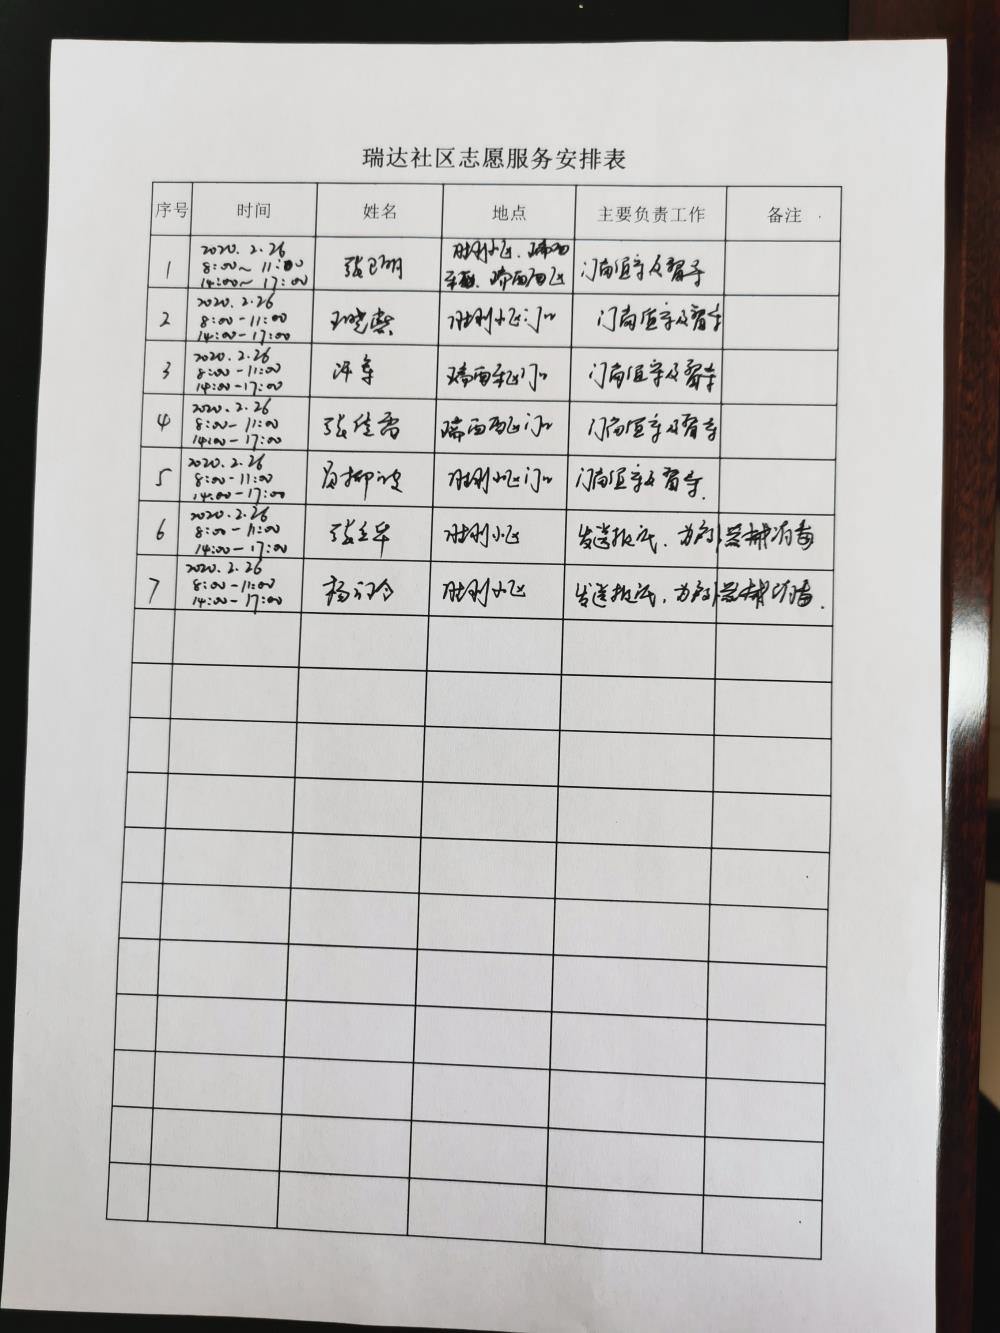 瑞达社区志愿服务安排表
序号 时间 姓名 地点 主要负责工作 备注
1 2020.2.26 8:00~11:00 14:00~17:00 张卫明 胜利小区、瑞西
2 2020.2.26 8:00-11:00 14:00-17:00 王晓燕 胜利小区门口 门岗值守及督导
3 2020.2.26 8:00-11:00 14:00-17:00 瑞西东区门口 门岗值守及督导
4 2020.2.26 8:00-11:00 14:00-17:00 张佳雷 瑞西西区门口 门岗值守及督导
5 2020.2.26 8:00-11:00 14:00-17:00 胜利小区门口 门岗值守及督导.
6 2020.2.26 8:00-11:00 14:00-17:00 胜利小区 消毒
7 2020.2.26 8:00-11:00 14:00-17:00 胜利小区 消毒.